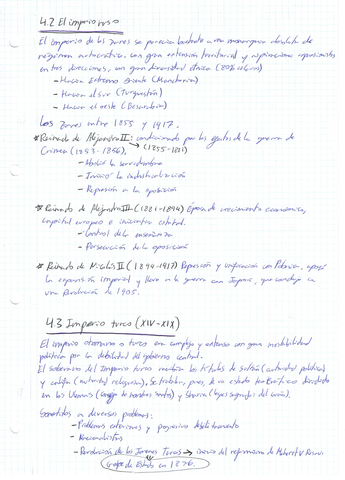 4.2 El imperio ruso
El imperio de los zares se parecía bastante a una monarquía absoluta de
régimen autocrático, con gran extensión territorial y aspiraciones expansionistas
en tres direcciones, con gran diversidad étnica (80% eslavos)
- Hacia Extremo Oriente (Manchuria)
- Hacia el sur (Turquestán)
- Hacia el oeste (Besarabia)
Los Zares entre 1855 y 1917.
* Reinado de Alejandro II: condicionado por los gastos de la guerra de
Crimea (1853-1856), → (1855-1881)
- Abolió la servidumbre
- Inició la industrialización
- Represión a la oposición
* Reinado de Alejandro III (1881-1894) Época de crecimiento económico,
capital europeo e iniciativa estatal.
- Control de la enseñanza
- Persecución de la oposición
* Reinado de Nicolás II (1894-1917) Represión y unificación con Polonia, apoyó
la expansión imperial y llevó a la guerra con Japón, que condujo a
una Revolución de 1905.
4.3 Imperio turco (XIV-XIX)
El imperio otomano o turco era complejo y extenso con gran inestabilidad
política por la debilidad del gobierno central.
El soberano del Imperio turco recibía los títulos de sultán (autoridad política)
y califa (autoridad religiosa). Se trataba, pues, de un estado teocrático dividido
en los Ulemas (consejo de hombres santos) y Sharia (leyes sagradas del corán).
Sometidos a diversos problemas:
- Problemas exteriores y progresivo debilitamiento
- Nacionalistas
- Revolución de los Jóvenes Turcos → inicio del reformismo de Mehmet V
Golpe de Estado en 1876.